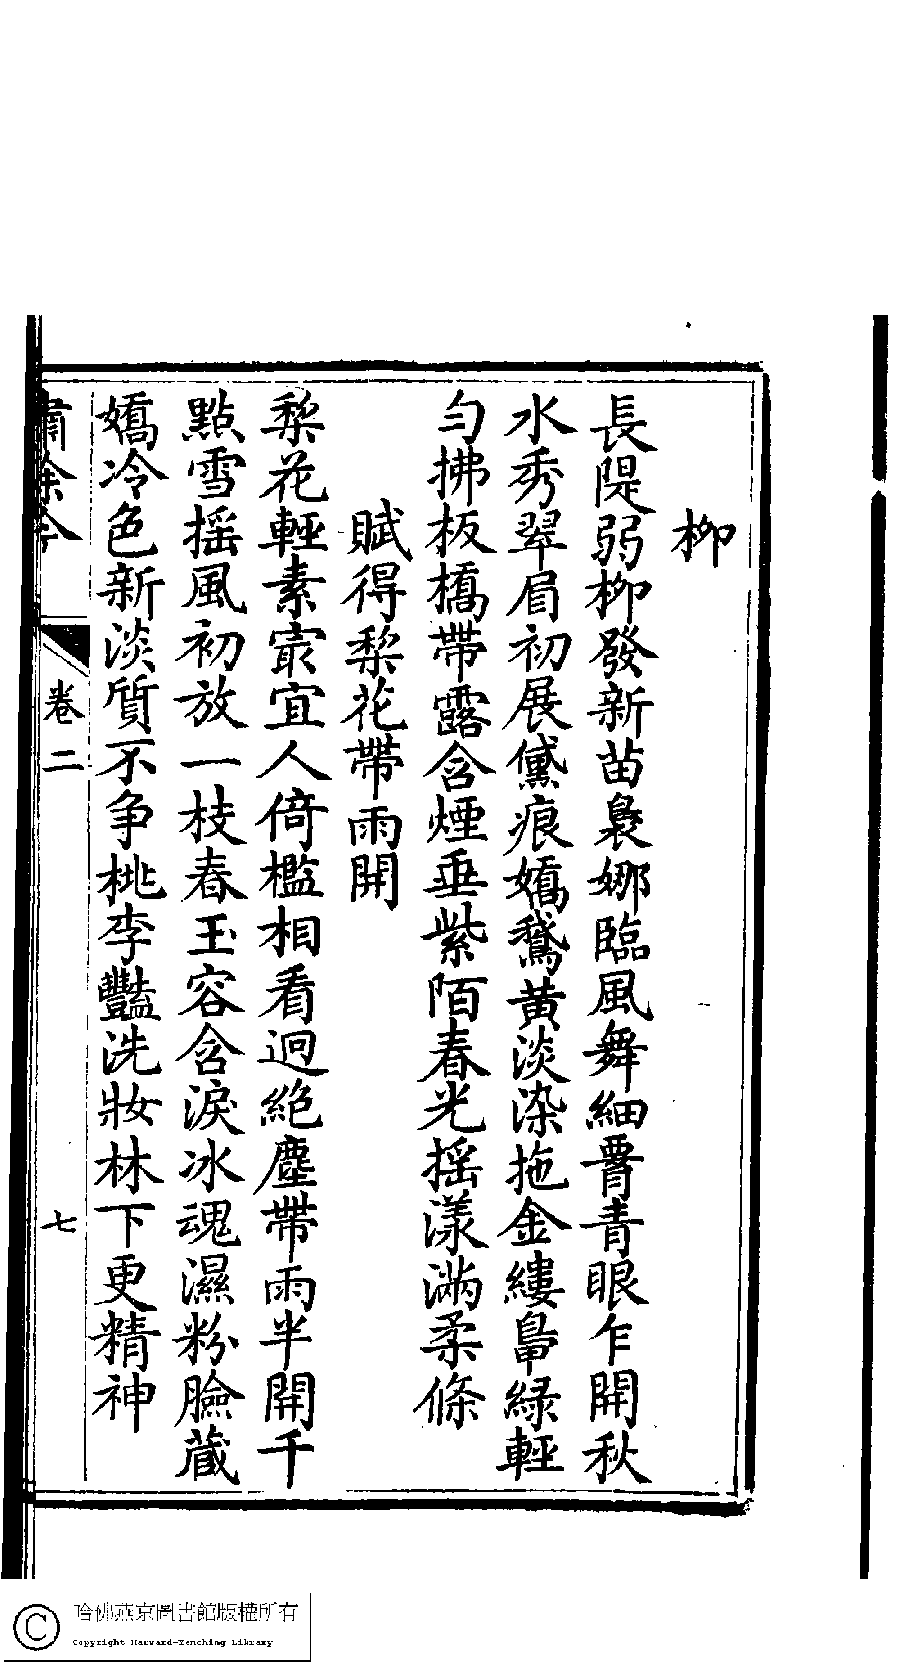 柳
長隄弱柳發新苗裊娜臨風舞細𦝫青眼乍開秋
水秀翠眉初展黛痕嬌鵞黄淡染拖金縷鳧緑輕
勻拂板橋帶露含煙垂紫陌春光摇漾滿柔條
賦得梨花帶雨開
梨花輕素㝡宜人倚檻相看迥絶塵帶雨半開千
點雪摇風初放一枝春玉容含淚冰魂濕粉臉蔵
嬌冷色新淡質不争桃李豔洗妝林下更精神
繡餘吟
卷二
七
哈佛燕京圖書館版權所有
Copyright Harvard-Yenching Library